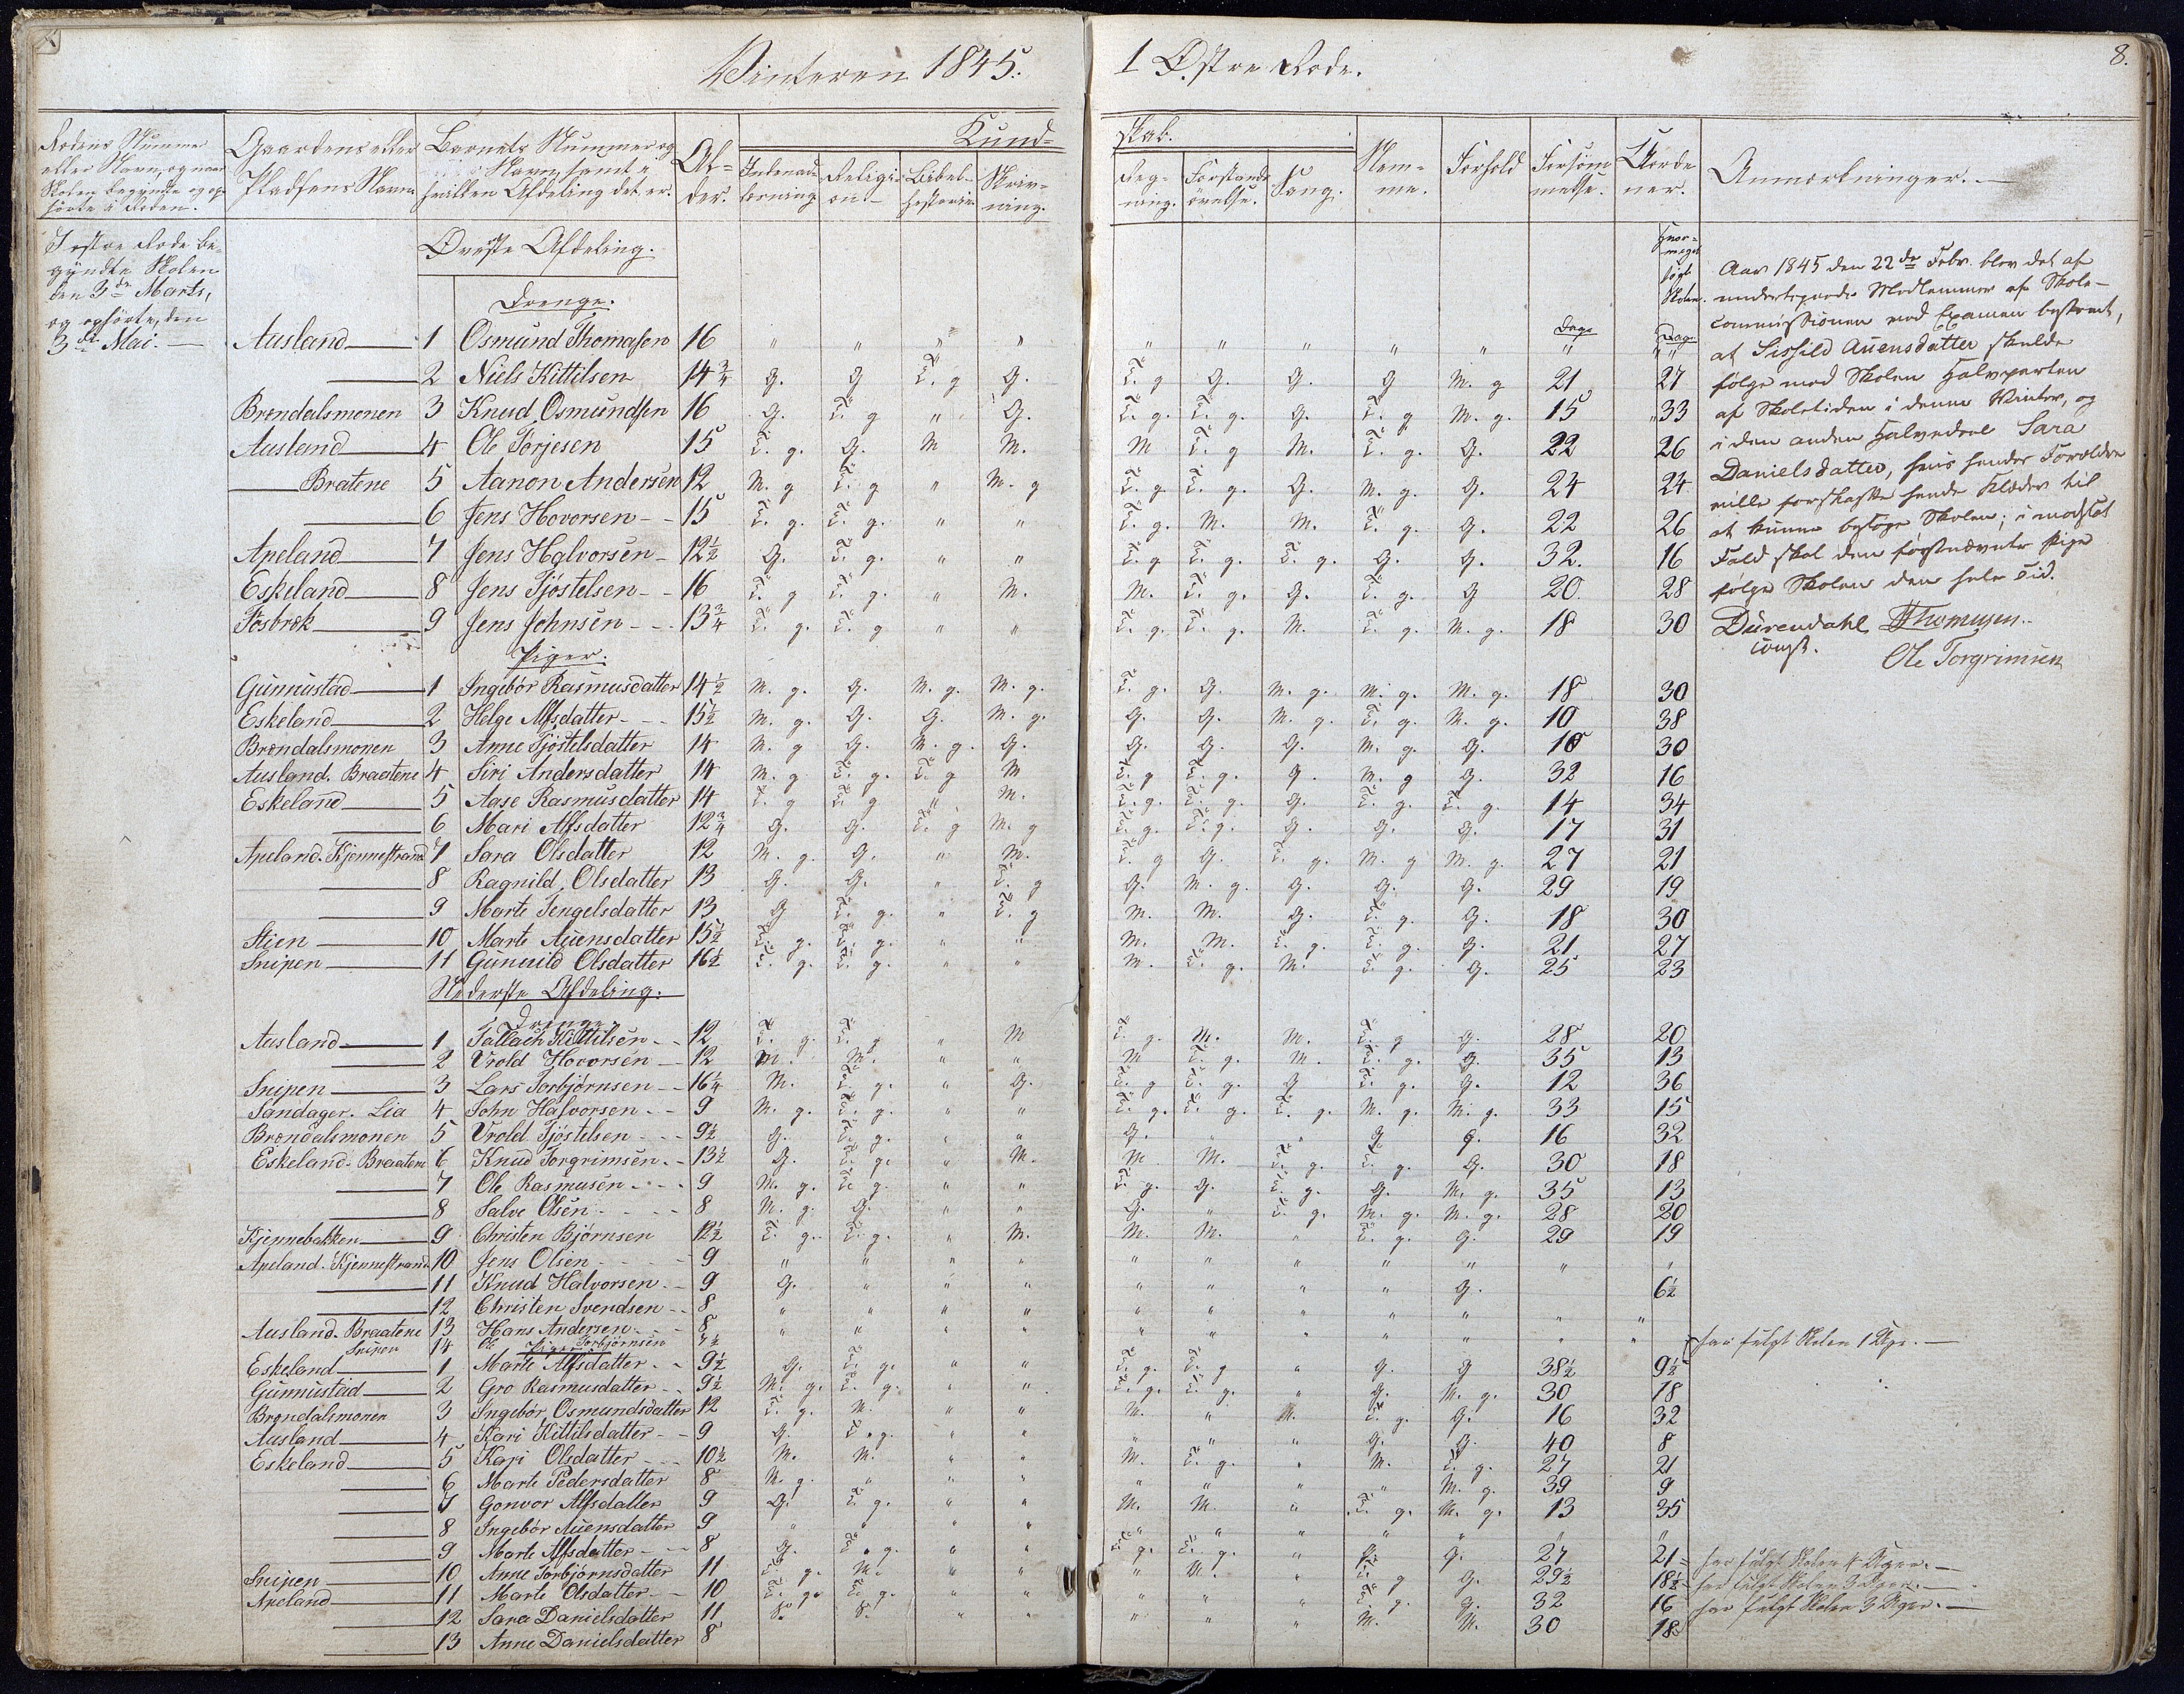 Vinteren 1845.
1 Østre Rode.
8.
Rodens Nummer eller Navn, og naar Skolen begyndte og ophørte i Roden.
Gaardens eller Pladsens Navn
Barnets Nummer og Navn, samt i hvilken Afdeling det er.
Alder.
Kundskab.
Indenadlæsning
Religion
Bibelhistorie
Skrivning.
Regning.
Forstandsøvelse.
Sang.
Nemme.
Forhold
Forsømmelse.
Anmærkninger.
I østre Rode begyndte Skolen
den 3die Marts,
og ophørte, den
3die Mai.
Øverste Afdeling.
Drenge.
Dage
Dage
Hvormeget søgt Skolen.
Ausland 1 Osmund Thomasen 16 " " " " " " " " " " "
2 Niels Kittilsen 14 3/4 G. G T. g G. T. g G. G. G M. g 21 27
Brændalsmonen 3 Knud Osmundsen 16 G. T. g " G. T. g. T. g. G. T. g M. g. 15 33
Ausland 4 Ole Torjesen 15 T. g. G. M M. M T. g M. T. g. G. 22 26
Bratene 5 Aanon Andersen 12 M. g T. g " M. g T. g T. g. G. M. g. G. 24 24
6 Jens Hovorsen 15 T. g. T. g. " " T. g. M. M. T. g. G. 22 26
Apeland 7 Jens Halvorsen 12 1/2 G. T. g. " " T. g T. g. T. g. G. G. 32. 16
Eskeland 8 Jens Tjøstelsen 16 T. g T. g. " M. M. T. g. G. T. g. G 20. 28
Fosbræk 9 Jens Johnsen 13 3/4 T. g. T. g " " T. g. T. g. M. T. g. M. g. 18 30
Aar 1845 den 22de Febr. blev det af
undertegnede Medlemmer af Skole-
commissionen ved Examen bestemt,
at Sissild Auensdatter skulde
følge med Skolen Halvparten
af Skoletiden i denne Vinter, og
i den anden Halvedeel Sara
Danielsdatter, hvis hendes Forældre
ville forskaffe hende Klæder til
at kunne besøge Skolen; i modsat
Fald skal den førstnævnte Pige
følge Skolen den hele Tid.
Durendahl Thomasen
const.
Ole Torgrimsen
Piger.
Gunnustad 1 Ingebor Rasmusdatter 14 1/2 M. g. G. M. g. M. g. T. g. G. M. g. M. g. M. g. 18 30
Eskeland 2 Helge Alfsdatter 15 1/2 M. g. G. G. M. g. G. G. M. g. T. g. M. g. 10 38
Brændalsmonen 3 Anne Tjøstelsdatter 14 M. g G. M. g. G. G. G. G. M. g. G. 18 30
Ausland. Braatene 4 Siri Andersdatter 14 M. g T. g. T. g M T. g T. g. G. M. g G. 32 16
Eskeland 5 Aase Rasmusdatter 14 T. g T. g " M. T. g. T. g. G. T. g. T. g. 14 34
6 Mari Alfsdatter 12 3/4 G. G. T. g M. g T. g. T. g. G. G. G. 17 31
Apeland. Kjennestrand 7 Sara Olsdatter 12 M. g. G. " M. T. g G. T. g. M. g M. g. 27 21
8 Ragnild Olsdatter 13 G. G. " T. g G. M. g. G. G. G. 29 19
9 Marte Tengelsdatter 13 G T. g. " T. g M. M. G. T. g. G. 18 30
Stien 10 Marte Auensdatter 15 1/2 T. g. T. g. " " M. M. T. g. T. g. G. 21 27
Snipen 11 Gunuild Olsdatter 16 1/2 T. g. T. g. " " M. T. g. M. T. g. G. 25 23
Nederste Afdeling.
Drenge
Ausland 1 Tallach Kittilsen 12 T. g. T. g " M T. g. M. M. T. g G. 28 20
2 Vrold Hovorsen 12 M. M. " " M T. g. M. T. g. G. 35 13
Snipen 3 Lars Torbjørnsen 16 1/4 M. T. g. " G. T. g T. g. G T. g. G. 12 36
Sandager. Lia 4 John Halvorsen 9 M. g. T. g. " " T. g. T. g. T. g. M. g. M. g. 33 15
Brændalsmonen 5 Vrold Tjøstelsen 9 1/2 G. T. g. " " G. " " G G. 16 32
Eskeland. Braaten 6 Knud Torgrimsen 13 1/2 G. T. g. " M. M M. T. g. T. g. G. 30 18
7 Ole Rasmusen 9 M. g. T. g. " " T. g. G. T. g. G. M. g. 35 13
8 Salve Olsen 8 M. g. G. " " G. " T. g. M. g. M. g. 28 20
Kjennebakken 9 Christen Bjørnsen 12 1/2 T. g. T. g. " M. M. M. " T. g. G. 29 19
Apeland. Kjennestrand 10 Jens Olsen 9 " " " " " " " " " " "
11 Knud Halvorsen 9 G. " " " " " " " G. 6 1/2
12 Christen Svendsen 8 " " " " " " " " " " "
Ausland. Braatene 13 Hans Andersen 8 " " " " " " " " " " "
Snipen 14 Ole Torbjørnsen 7 1/2 har fulgt Skolen 1 Uge.
Piger
Eskeland 1 Marte Alfsdatter 9 1/2 G. T. g. " " T. g. T. g " G. G 38 1/2 9 1/2
Gunnustad 2 Gro Rasmusdatter 9 1/2 M. g. T. g. " " T. g. T. g. " G. M. g. 30 18
Brændalsmonen 3 Ingebor Osmundsdatter 12 T. g. M. " " M. " M. T. g. G. 16 32
Ausland 4 Kari Kittilsdatter 9 G. T. g. " " " " " G. G. 40 8
Eskeland 5 Kari Olsdatter 10 1/2 M. M. " " M. T. g. " M. T. g. 27 21
6 Marte Pedersdatter 8 M. g. " " " " " " " M. g. 39 9
7 Gonvor Alfsdatter 9 G. T. g. " " M. M. " T. g. M. g. 13 35
8 Ingebor Auensdatter 9 " " " " " " " " " " "
9 Marte Alfsdatter 8 G. T. g. " " T. g. T. g. " G. 27 21 har fulgt Skolen 4 Uger.
Snipen 10 Anne Torbjørnsdatter 11 T. g. M. " " " M. " T. g G. 29 1/2 18 1/2 har fulgt Skolen 3 Uger.
Apeland 11 Marte Olsdatter 10 T. g. T. g. " " " " " T. g. G. 32 16 har fulgt Skolen 3 Uger.
12 Sara Danielsdatter 11 S. S. " " " " " M. M. 30 18
13 Anne Danielsdatter 8